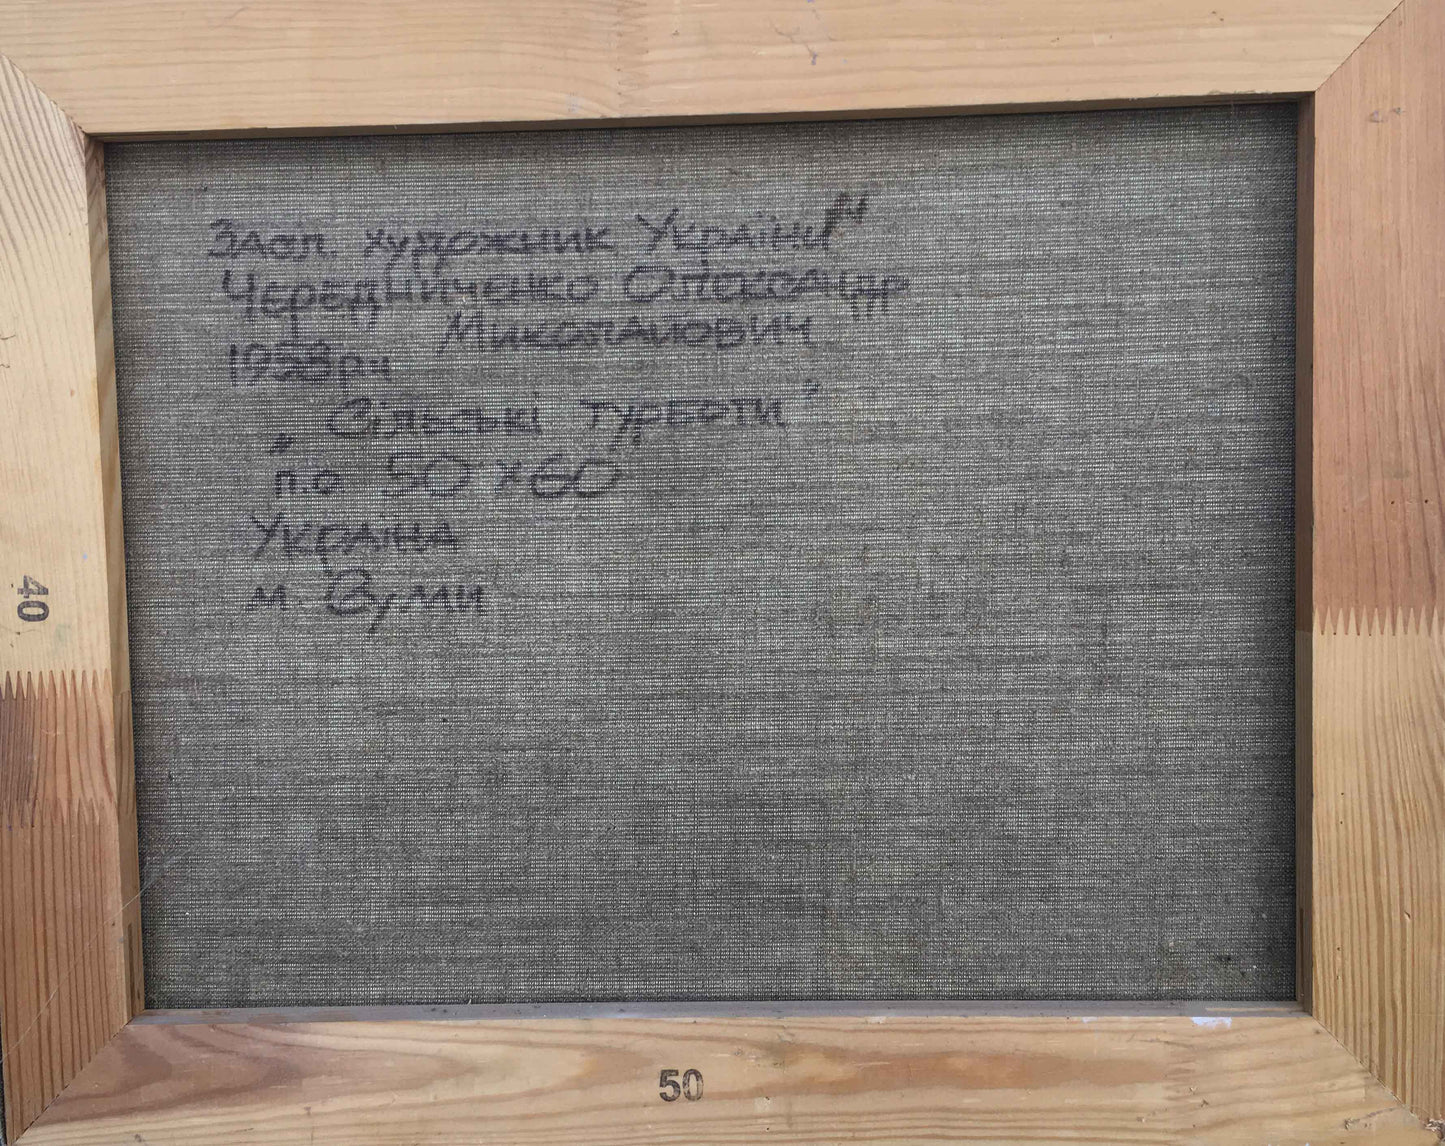 Засл. художник України
Чередниченко Олександр
Миколайович
1958рн
„Сільські турботи"
п.о. 50х60
Україна
м. Суми
40
50